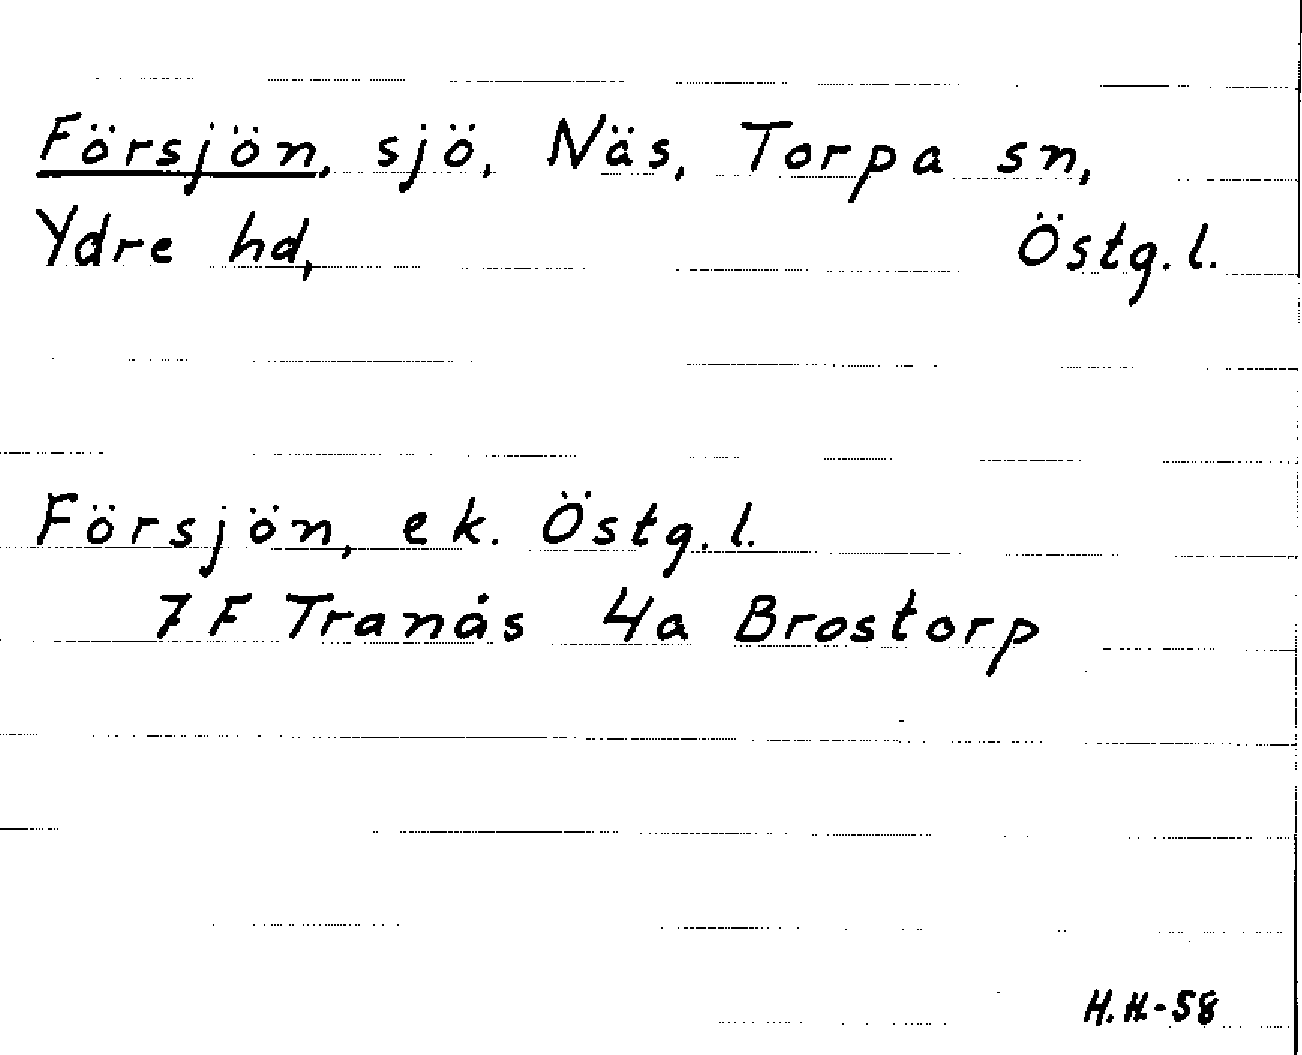 Försjön, sjö, Näs, Torpa sn,
Ydre hd, Östg. l.
Försjön, ek. Östg. l.
7 F Tranås 4a Brostorp
H. H-58